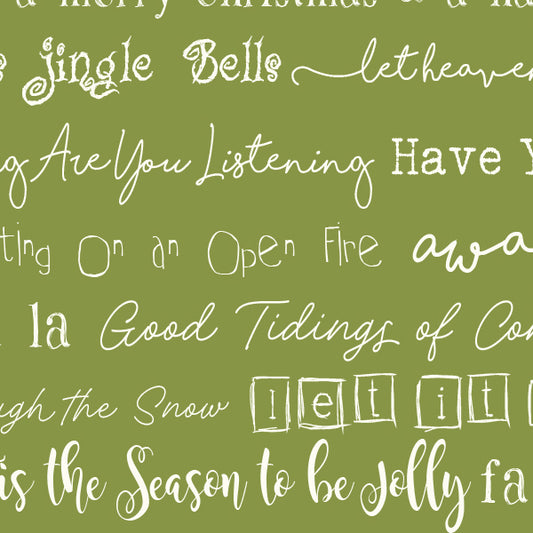 a merry christmas & a ha
jingle Bells let heaven
ng Are You Listening Have Y
ting On an Open Fire awa
la Good Tidings of Com
ugh the Snow let it
is the Season to be Jolly fa